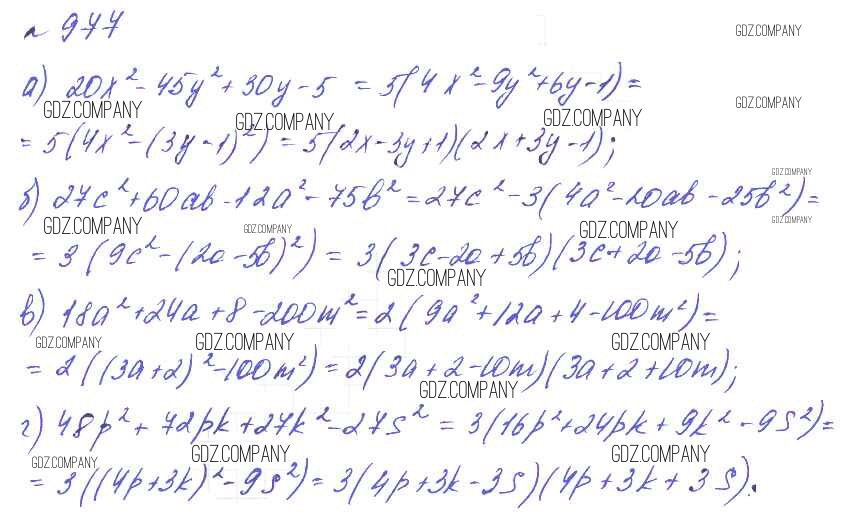 № 977
GDZ.COMPANY
а) 20x² - 45y² + 30y - 5 = 5(4x² - 9y² + 6y - 1) =
GDZ.COMPANY GDZ.COMPANY GDZ.COMPANY GDZ.COMPANY
= 5(4x² - (3y - 1)²) = 5(2x - 3y + 1)(2x + 3y - 1);
GDZ.COMPANY
б) 27c² + 60ab - 12a² - 75b² = 27c² - 3(4a² - 20ab - 25b²) =
GDZ.COMPANY GDZ.COMPANY GDZ.COMPANY GDZ.COMPANY
= 3(9c² - (2a - 5b)²) = 3(3c - 2a + 5b)(3c + 2a - 5b);
GDZ.COMPANY
в) 18a² + 24a + 8 - 200m² = 2(9a² + 12a + 4 - 100m²) =
GDZ.COMPANY GDZ.COMPANY GDZ.COMPANY
= 2((3a + 2)² - 100m²) = 2(3a + 2 - 10m)(3a + 2 + 10m);
GDZ.COMPANY
г) 48p² + 72pk + 27k² - 27s² = 3(16p² + 24pk + 9k² - 9s²) =
GDZ.COMPANY GDZ.COMPANY GDZ.COMPANY
= 3((4p + 3k)² - 9s²) = 3(4p + 3k - 3s)(4p + 3k + 3s).